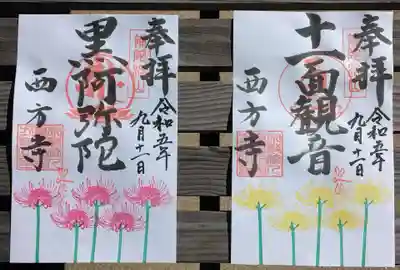 奉拝
黒阿弥陀
令和五年
九月十一日
西方寺
奉拝
十一面観音
令和五年
九月十一日
西方寺